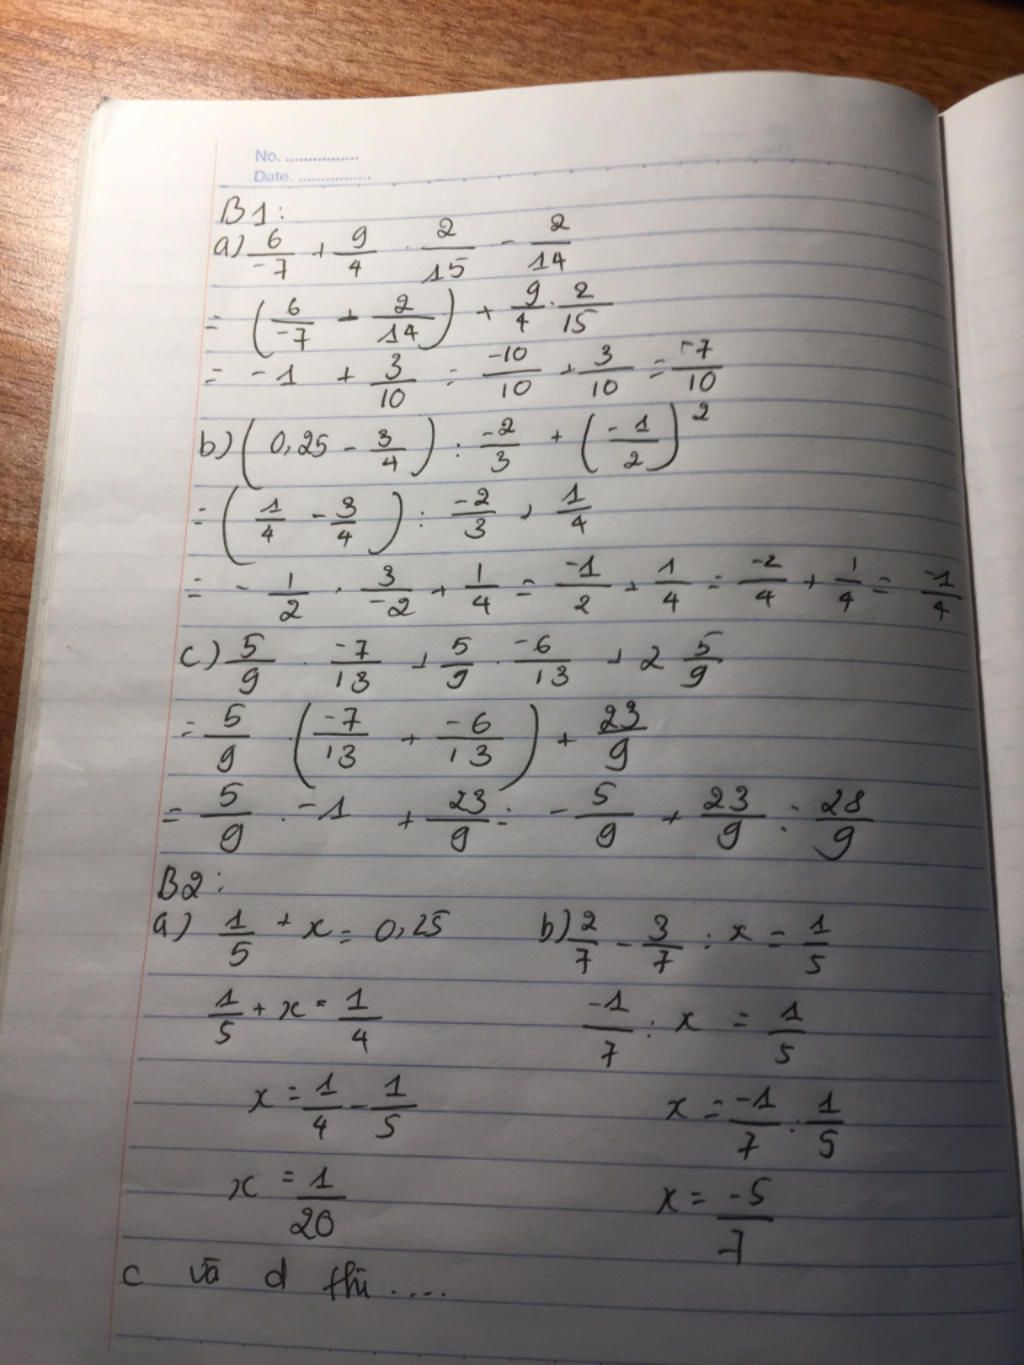 No. ................
Date. ................
B1:
a) 6/-7 + 9/4 · 2/15 - 2/14
= (6/-7 + 2/14) + 9/4 · 2/15
= -1 + 3/10 = -10/10 + 3/10 = -7/10
b) (0,25 - 3/4) : -2/3 + (-1/2)²
= (1/4 - 3/4) : -2/3 + 1/4
= - 1/2 · 3/-2 + 1/4 = -1/2 + 1/4 = -2/4 + 1/4 = -1/4
c) 5/9 · -7/13 + 5/9 · -6/13 + 2 5/9
= 5/9 · (-7/13 + -6/13) + 23/9
= 5/9 · -1 + 23/9 = - 5/9 + 23/9 = 28/9
B2:
a) 1/5 + x = 0,25 b) 2/7 - 3/7 : x = 1/5
1/5 + x = 1/4 -1/7 : x = 1/5
x = 1/4 - 1/5 x = -1/7 : 1/5
x = 1/20 x = -5/7
c và d thì ....